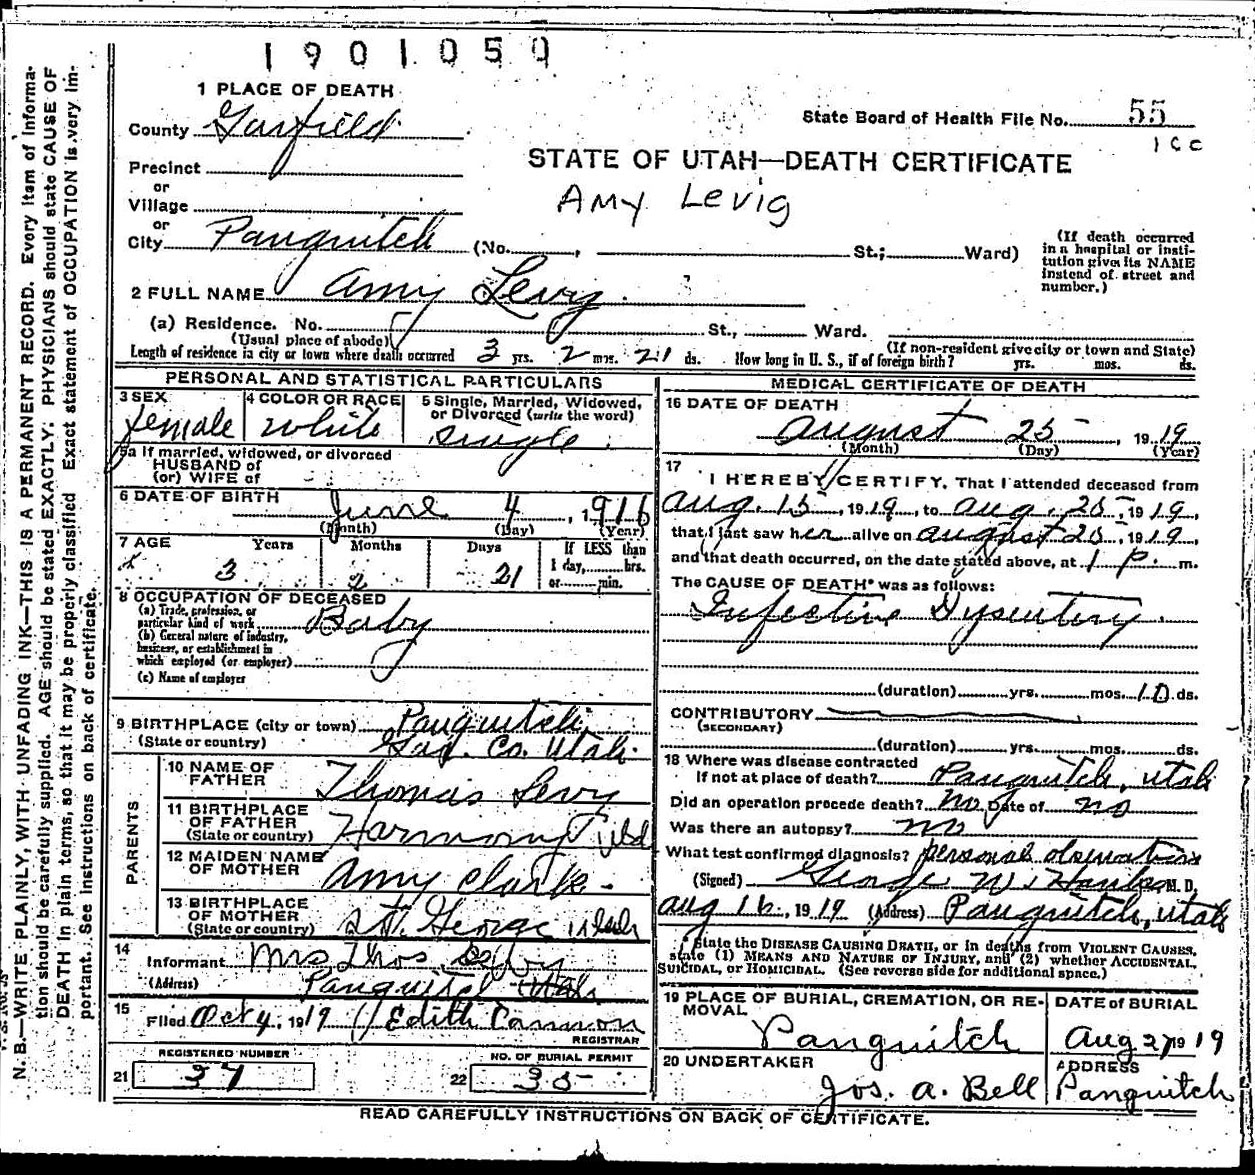 1901050
1 PLACE OF DEATH
County Garfield
State Board of Health File No. 55
Precinct
or
Village
STATE OF UTAH—DEATH CERTIFICATE
Amy Levig
or
City Panguitch (No. , St.; Ward)
(If death occurred
in a hospital or insti-
tution give its NAME
instead of street and
number.)
2 FULL NAME Amy Levy.
(a) Residence. No. St., Ward.
(Usual place of abode)
(If non-resident give city or town and State)
Length of residence in city or town where death occurred 3 yrs. 2 mos. 21 ds. How long in U. S., if of foreign birth? yrs. mos. ds.
PERSONAL AND STATISTICAL PARTICULARS
3 SEX
female
4 COLOR OR RACE
White
5 Single, Married, Widowed,
or Divorced (write the word)
Single.
5a If married, widowed, or divorced
HUSBAND of
(or) WIFE of
6 DATE OF BIRTH
June 4, 1916
(Month) (Day) (Year)
7 AGE Years Months Days If LESS than
1 day, hrs.
or min.
3 2 21
8 OCCUPATION OF DECEASED
(a) Trade, profession, or
particular kind of work Baby
(b) General nature of industry,
business, or establishment in
which employed (or employer)
(c) Name of employer
9 BIRTHPLACE (city or town) Panguitch,
(State or country) Gar. Co. Utah.
PARENTS
10 NAME OF
FATHER Thomas Levy
11 BIRTHPLACE
OF FATHER
(State or country) Harmony
12 MAIDEN NAME
OF MOTHER Amy Clark.
13 BIRTHPLACE
OF MOTHER
(State or country) St. George Utah
14
Informant Mrs Thos Levy
(Address) Panguitch Utah
15
Filed Oct 4, 1919 Edith Cannon
REGISTRAR
REGISTERED NUMBER
21 37
NO. OF BURIAL PERMIT
22 35
MEDICAL CERTIFICATE OF DEATH
16 DATE OF DEATH
August 25, 1919
(Month) (Day) (Year)
17
I HEREBY CERTIFY, That I attended deceased from
Aug. 15, 1919, to Aug. 25, 1919,
that I last saw her alive on August 25, 1919,
and that death occurred, on the date stated above, at 1 P. m.
The CAUSE OF DEATH* was as follows:
Infective Dysentery.
(duration) yrs. mos. 10 ds.
CONTRIBUTORY
(SECONDARY)
(duration) yrs. mos. ds.
18 Where was disease contracted
If not at place of death? Panguitch, Utah
Did an operation precede death? no Date of no
Was there an autopsy? no
What test confirmed diagnosis? personal observation
(Signed) George W. M. D.
Aug 16, 1919 (Address) Panguitch, Utah
* State the DISEASE CAUSING DEATH, or in deaths from VIOLENT CAUSES,
state (1) MEANS AND NATURE OF INJURY, and (2) whether ACCIDENTAL,
SUICIDAL, or HOMICIDAL. (See reverse side for additional space.)
19 PLACE OF BURIAL, CREMATION, OR RE-
MOVAL
Panguitch
DATE of BURIAL
Aug 27 1919
20 UNDERTAKER
Jos. A. Bell
ADDRESS
Panguitch
READ CAREFULLY INSTRUCTIONS ON BACK OF CERTIFICATE.
N. B.—WRITE PLAINLY, WITH UNFADING INK—THIS IS A PERMANENT RECORD. Every item of informa-
tion should be carefully supplied. AGE should be stated EXACTLY. PHYSICIANS should state CAUSE OF
DEATH in plain terms, so that it may be properly classified. Exact statement of OCCUPATION is very im-
portant. See instructions on back of certificate.